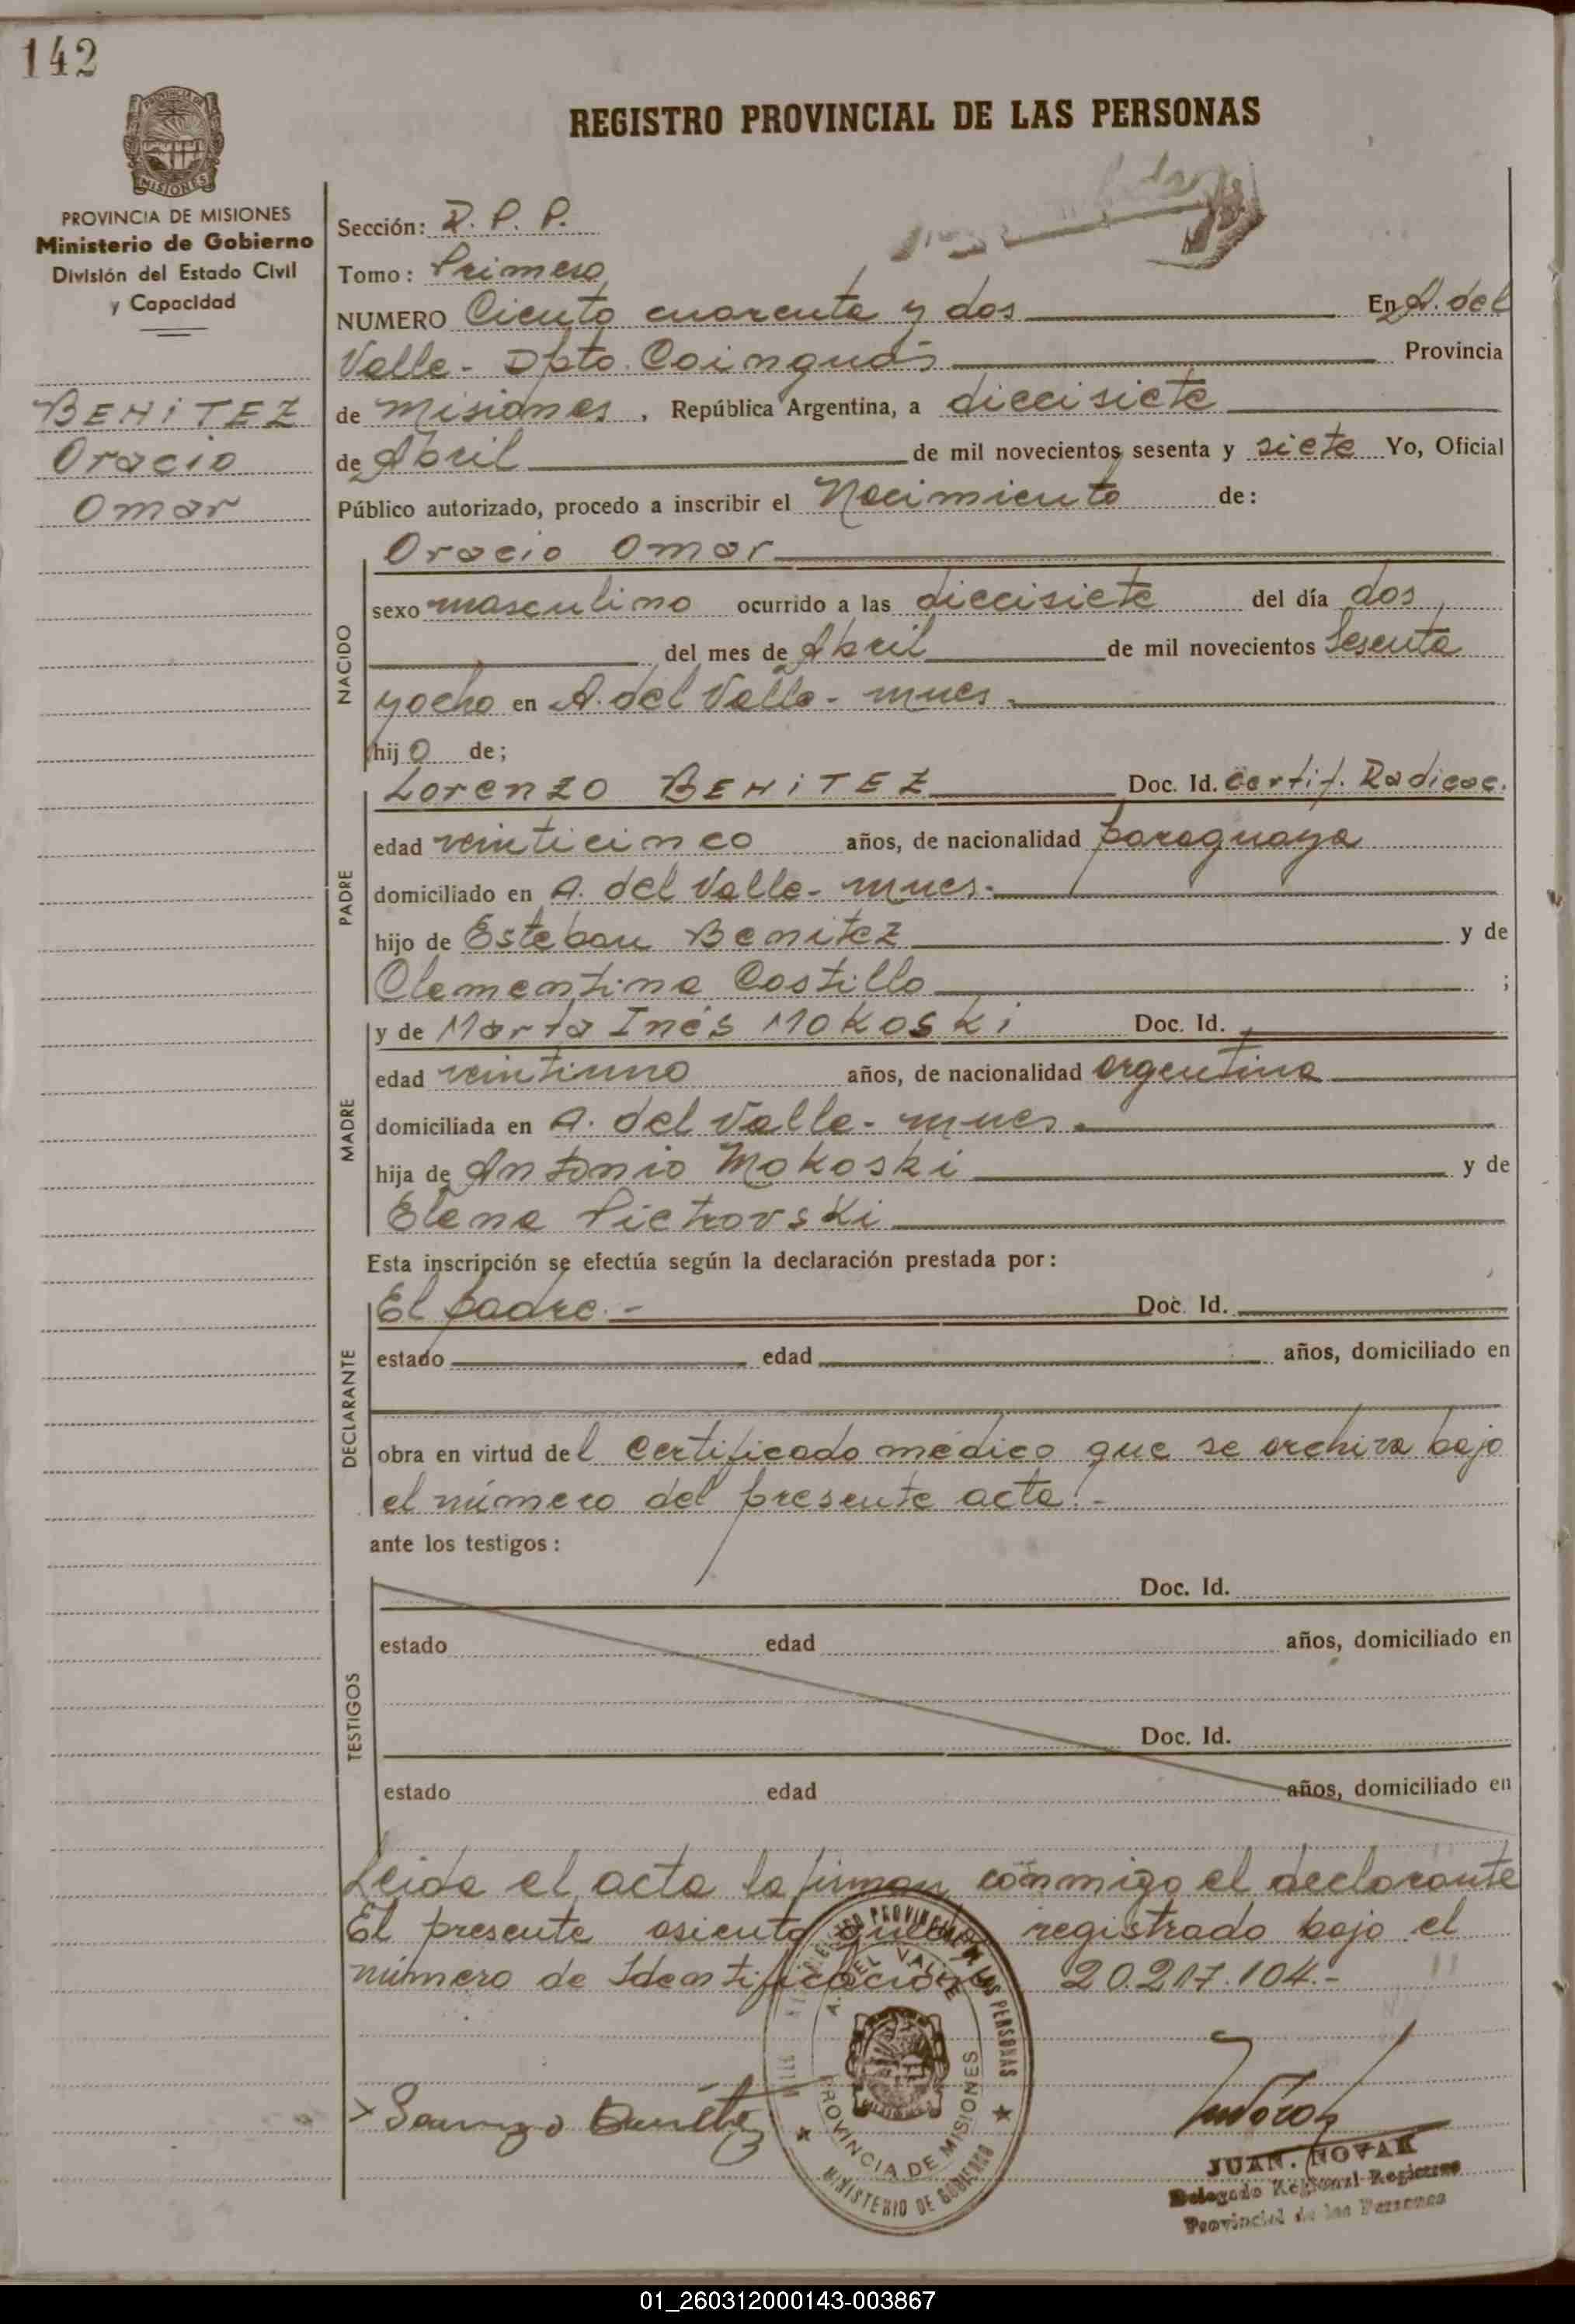 142
REGISTRO PROVINCIAL DE LAS PERSONAS
PROVINCIA DE MISIONES
MISIONES
PROVINCIA DE MISIONES
Ministerio de Gobierno
División del Estado Civil
y Capacidad
BENiTEZ
Oracio
Omar
Sección: R. P. P.
Tomo: Primero
NUMERO Ciento cuarenta y dos En A. del
Valle - Dpto. Cainguás Provincia
de Misiones, República Argentina, a diecisiete
de Abril de mil novecientos sesenta y siete Yo, Oficial
Público autorizado, procedo a inscribir el Nacimiento de:
NACIDO
Oracio Omar
sexo masculino ocurrido a las diecisiete del día dos
del mes de Abril de mil novecientos Sesenta
yocho en A. del Valle - mnes.
hijo de;
PADRE
Lorenzo BENiTEZ Doc. Id. Certif. Radicac.
edad veinticinco años, de nacionalidad paraguaya
domiciliado en A. del Valle - mnes.
hijo de Esteban Benitez y de
Clementina Castillo ;
MADRE
y de Marta Inés MOKOSKi Doc. Id.
edad veintiuno años, de nacionalidad argentina
domiciliada en A. del Valle - mnes.
hija de Antonio Mokoski y de
Elena Pietrovski
Esta inscripción se efectúa según la declaración prestada por:
DECLARANTE
El padre.- Doc. Id.
estado edad años, domiciliado en
obra en virtud del Certificado médico que se archiva bajo
el número del presente acta.-
ante los testigos:
TESTIGOS
Doc. Id.
estado edad años, domiciliado en
Doc. Id.
estado edad años, domiciliado en
Leida el acta la firman conmigo el declarante
El presente asiento queda registrado bajo el
número de Identificación 20.217.104.-
REGISTRO PROVINCIAL DE LAS PERSONAS
A. DEL VALLE
PROVINCIA DE MISIONES
MINISTERIO DE GOBIERNO
JUAN. NOVAK
Delegado Regional Registro
Provincial de las Personas
01_260312000143-003867